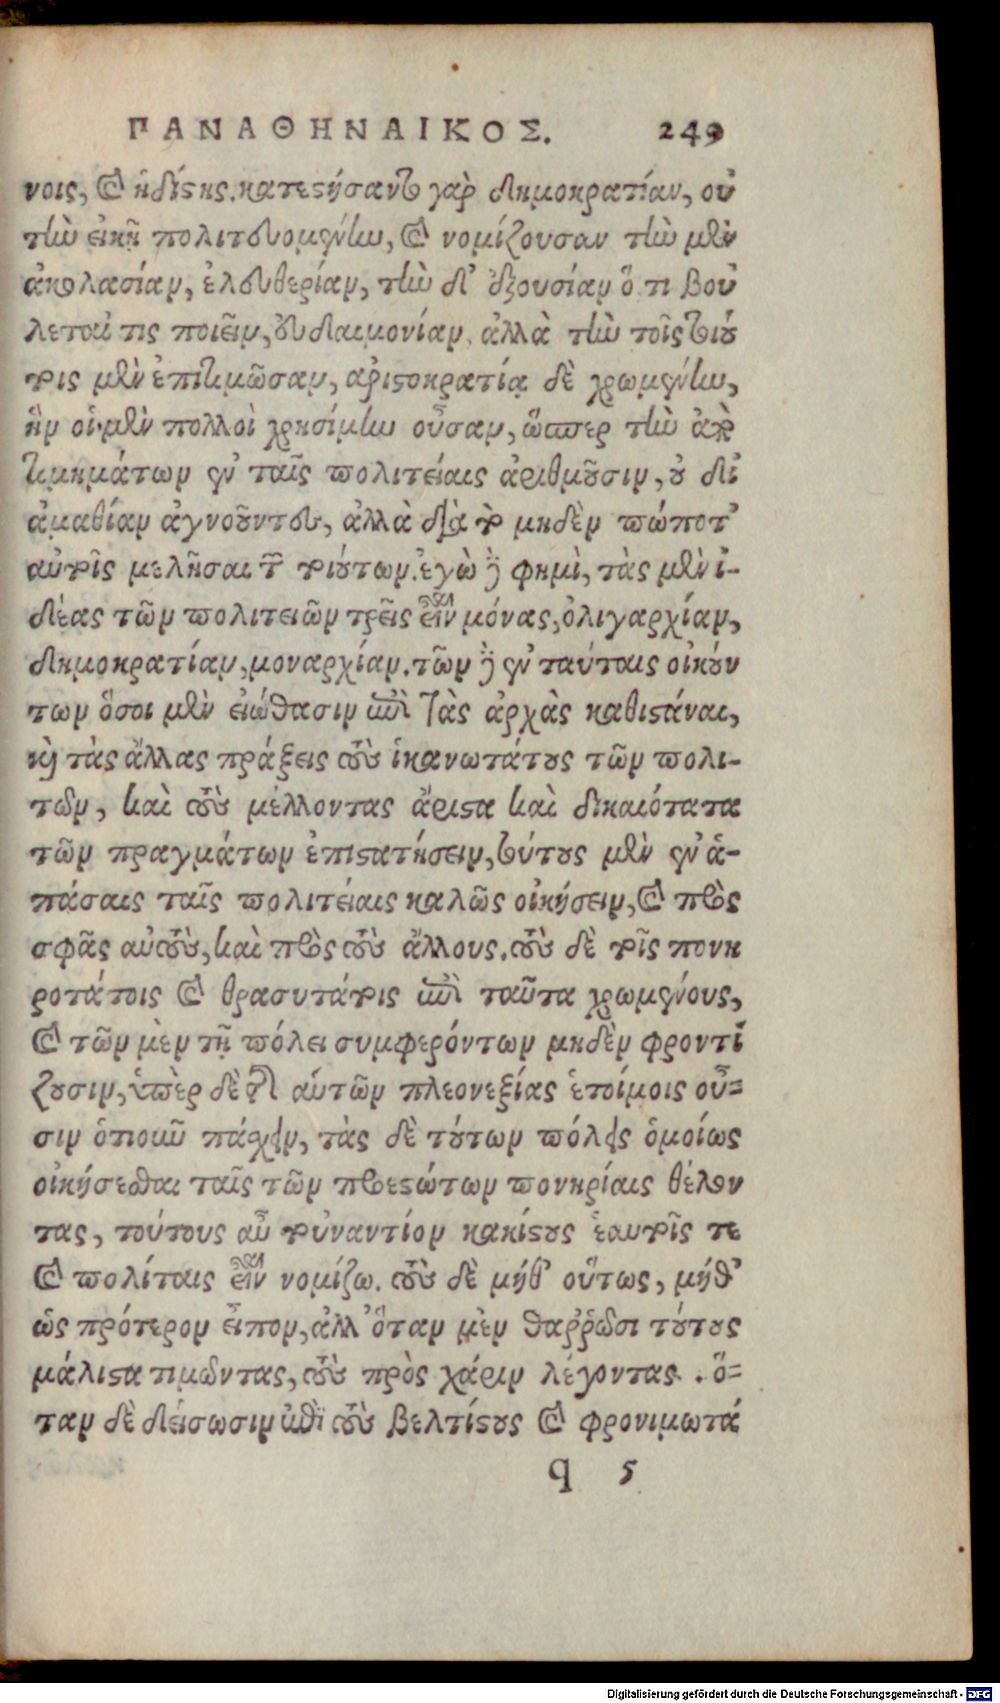 ΠΑΝΑΘΗΝΑΙΚΟΣ. 249
νοις, καὶ ἡδίστης. κατεστήσαντο γὰρ δημοκρατίαν, οὐ
τὴν εἰκῇ πολιτευομένην, καὶ νομίζουσαν τὴν μὲν
ἀκολασίαν, ἐλευθερίαν, τὴν δ' ἐξουσίαν ὅ τι βού
λεταί τις ποιεῖν, εὐδαιμονίαν, ἀλλὰ τὴν τοῖς τοιού
τοις μὲν ἐπιτιμῶσαν, ἀριστοκρατίᾳ δὲ χρωμένην,
ἣν οἱ μὲν πολλοὶ χρησίμην οὖσαν, ὥσπερ τὴν ἀπὸ
τιμημάτων ἐν ταῖς πολιτείαις ἀριθμοῦσιν, οὐ δι'
ἀμαθίαν ἀγνοοῦντες, ἀλλὰ διὰ τὸ μηδὲν πώποτ'
αὐτοῖς μελῆσαι τῶν τοιούτων. ἐγὼ δέ φημὶ, τὰς μὲν ἰ-
δέας τῶν πολιτειῶν τρεῖς εἶναι μόνας, ὀλιγαρχίαν,
δημοκρατίαν, μοναρχίαν. τῶν δὲ ἐν ταύταις οἰκούν
των ὅσοι μὲν εἰώθασιν ἐπὶ τὰς ἀρχὰς καθιστάναι,
καὶ τὰς ἄλλας πράξεις τοὺς ἱκανωτάτους τῶν πολι-
τῶν, καὶ τοὺς μέλλοντας ἄριστα καὶ δικαιότατα
τῶν πραγμάτων ἐπιστατήσειν, τούτους μὲν ἐν ἁ-
πάσαις ταῖς πολιτείαις καλῶς οἰκήσειν, καὶ πρὸς
σφᾶς αὐτοὺς, καὶ πρὸς τοὺς ἄλλους. τοὺς δὲ τοῖς πονη
ροτάτοις καὶ θρασυτάτοις ἐπὶ ταῦτα χρωμένους,
καὶ τῶν μὲν τῇ πόλει συμφερόντων μηδὲν φροντί
ζουσιν, ὑπὲρ δὲ τῆς αὑτῶν πλεονεξίας ἑτοίμοις οὖ-
σιν ὁτιοῦν πάσχειν, τὰς δὲ τούτων πόλεις ὁμοίως
οἰκήσεσθαι ταῖς τῶν προεστώτων πονηρίαις θέλον
τας, τούτους αὖ τοὐναντίον κακίστους ἑαυτοῖς τε
καὶ πολίταις εἶναι νομίζω. τοὺς δὲ μήθ' οὕτως, μήθ'
ὡς πρότερον εἶπον, ἀλλ' ὅταν μὲν θαῤῥῶσι τούτους
μάλιστα τιμῶντας, τοὺς πρὸς χάριν λέγοντας. ὅ-
ταν δὲ δείσωσιν ἐπὶ τοὺς βελτίστους καὶ φρονιμωτά
q 5
Digitalisierung gefördert durch die Deutsche Forschungsgemeinschaft - DFG